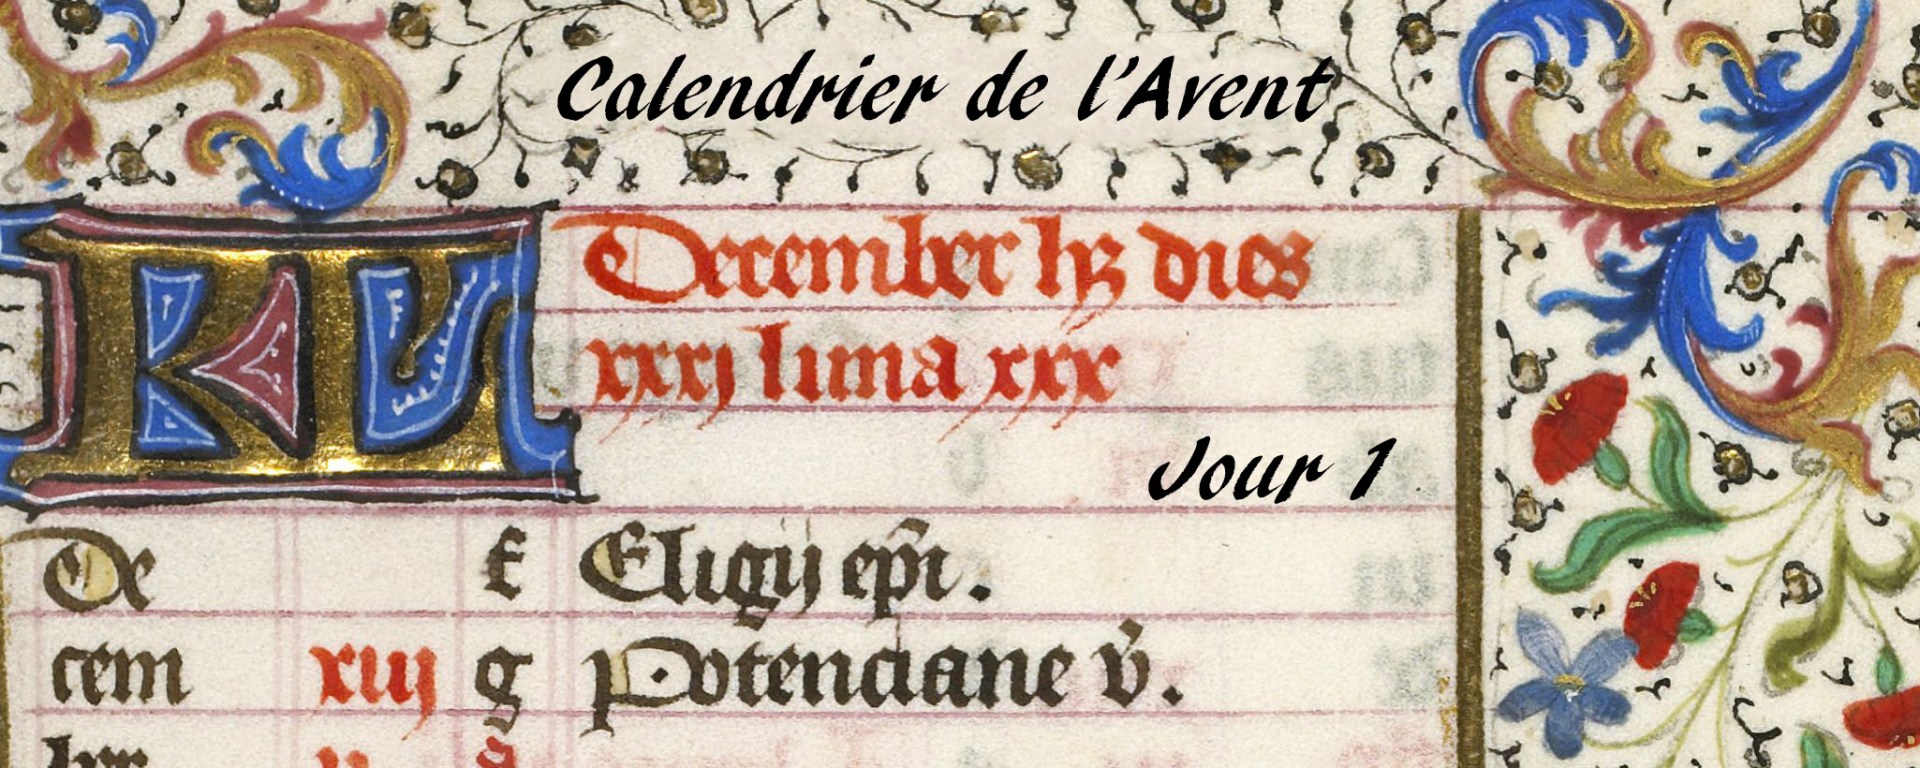 Calendrier de l'Avent
KL December hꝫ dies
xxxj luna xxx
Jour 1
De f Eligij ep̄i.
cem xiij g Potenciane v̄.